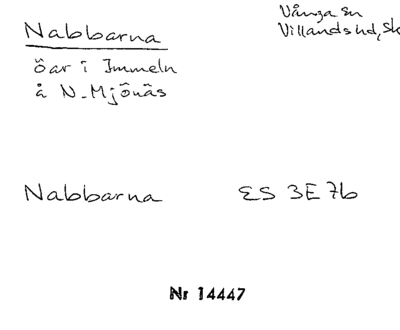 Nabbarna
Vånga sn
Villands hd, Sk
öar i Immeln
å N. Mjönäs
Nabbarna ES 3E7b
Nr 14447